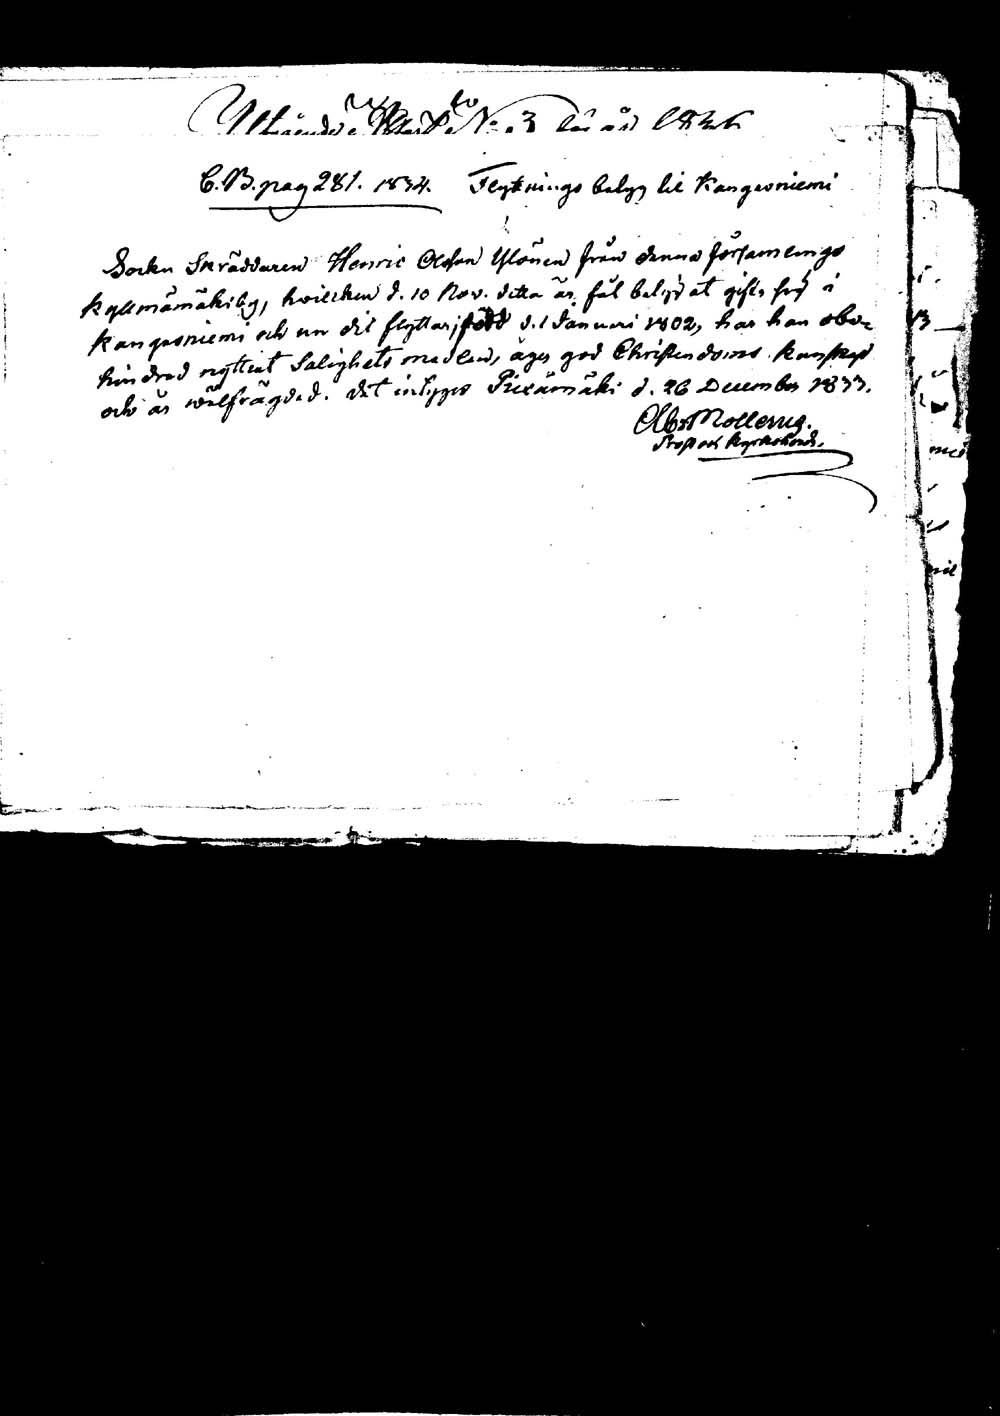 No. 3
C.B. pag 281. 1834. Flyttnings betyg til Kangasniemi
Sockn Skräddaren Henric Olofson Ylönen från denna församlings
Kyllmämäki by, hvilcken d. 10 Nov. detta år fåt betyg at gifta sig i
Kangasniemi och nu dit flyttar, född d. 1 Januari 1802, har han obe-
hindrad nyttiat Salighets medlen, äger god Christendoms kunskap
och är wälfrägdad. Det intygar Piexämäki d. 26 December 1833.
Prost och Kyrkoherde.